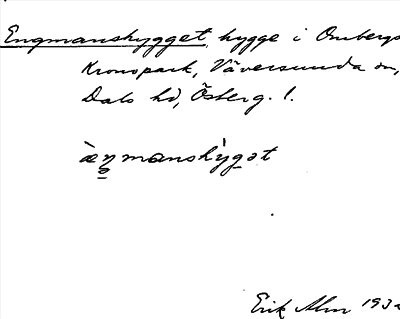 Engmanshygget, hygge i Ombergs
Kronopark, Väversunda sn,
Dals hd, Ösberg. l.
ä̀ŋmanshỳgət
Erik Alm 193